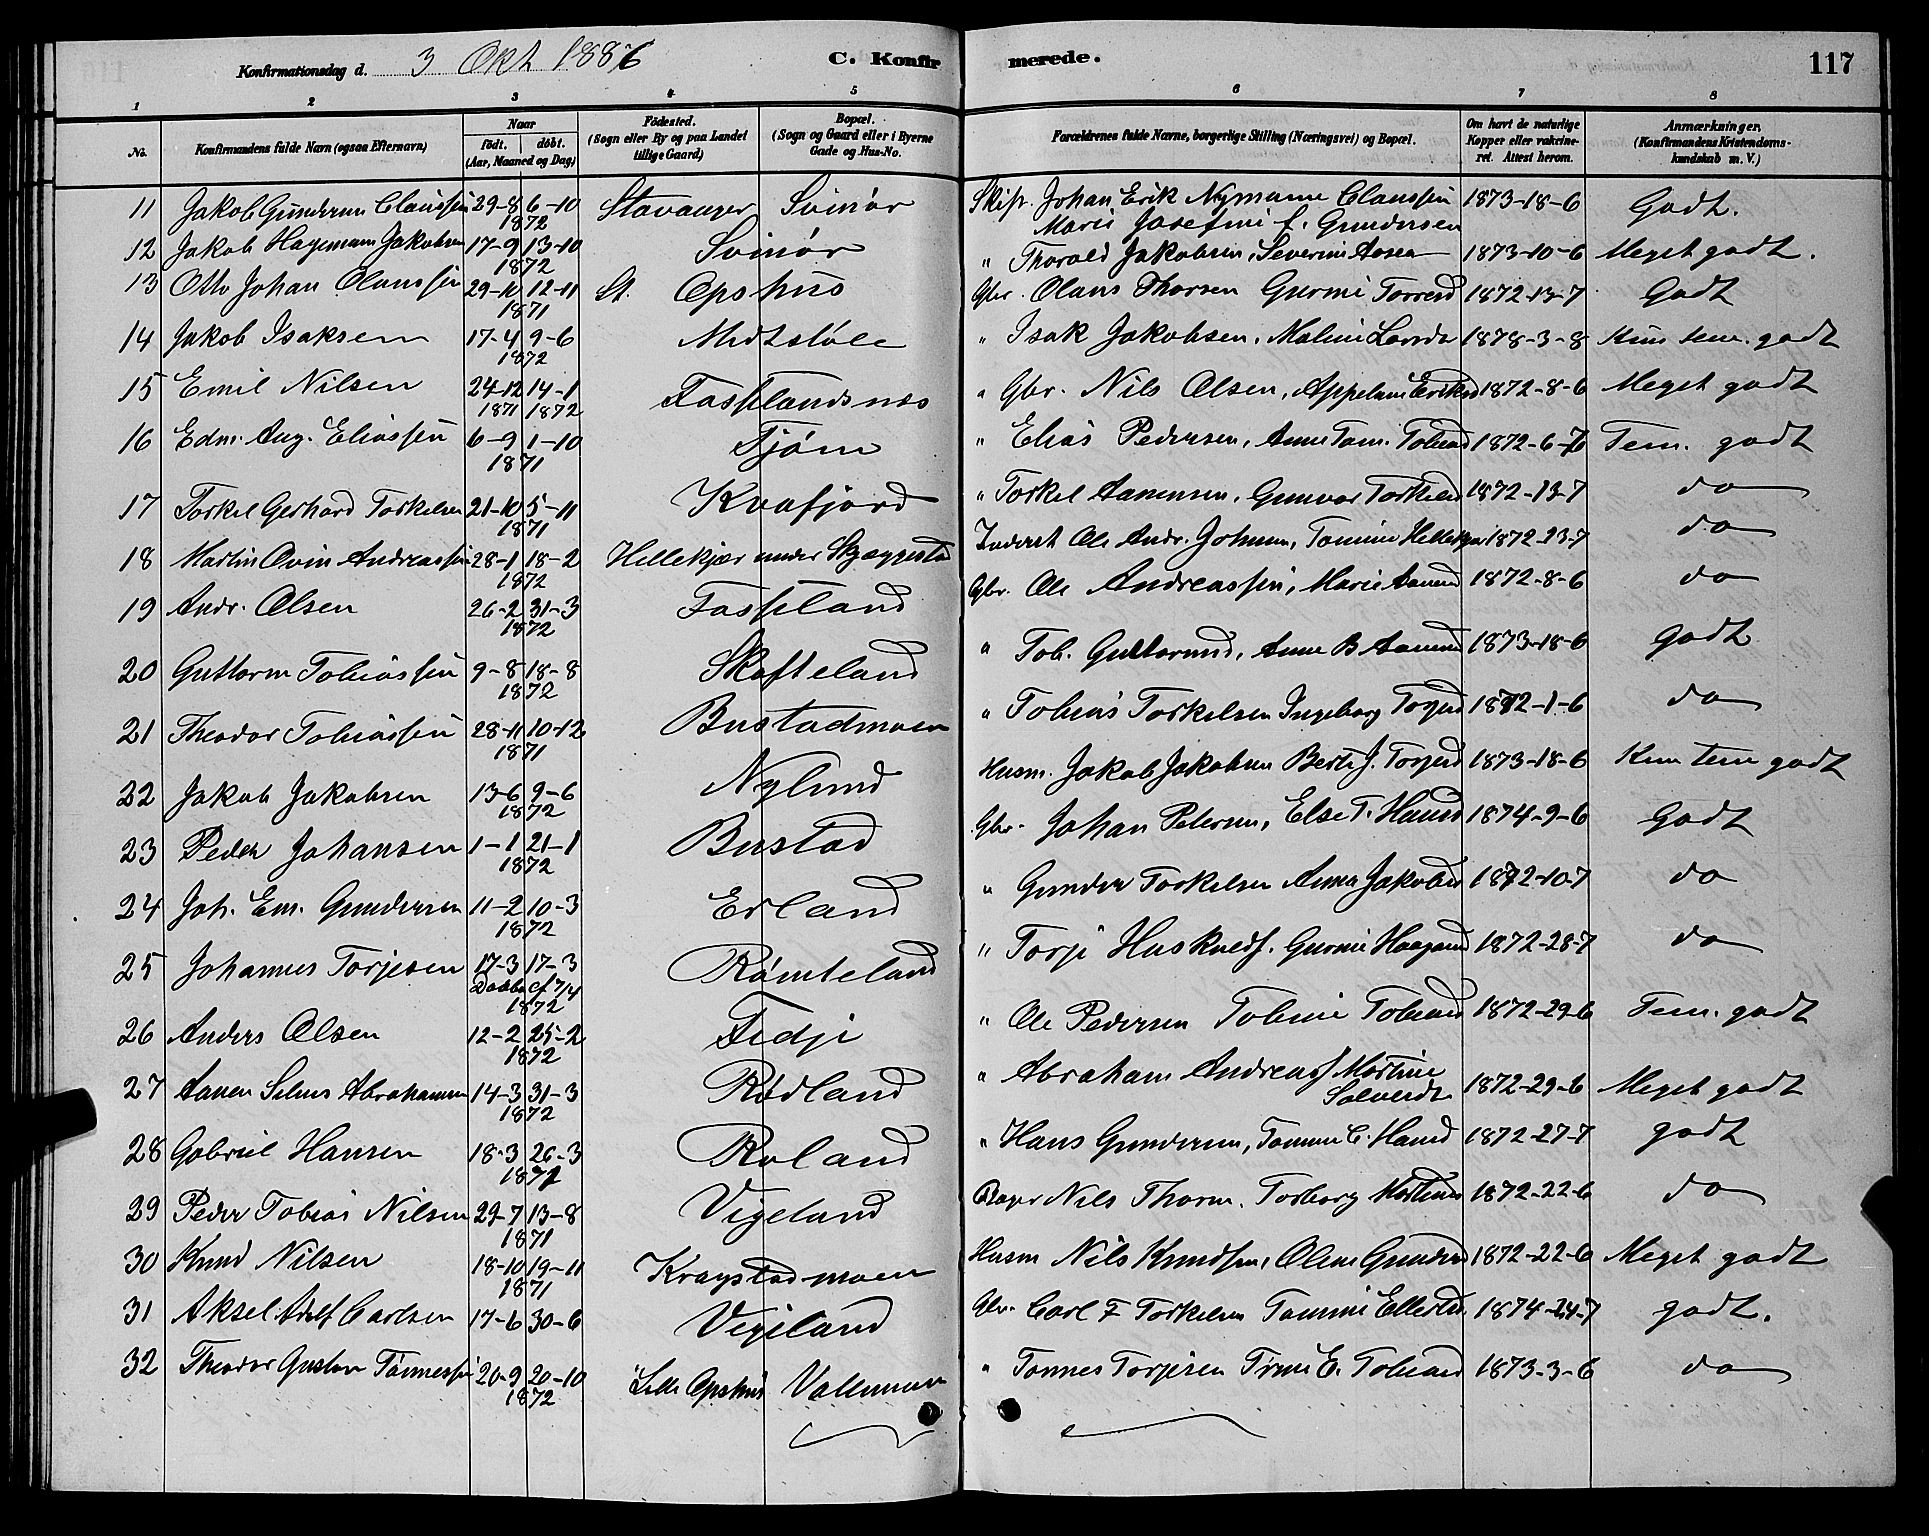 Konfirmationsdag d. 3 Okt 1886 C. Konfirmerede. 117
1 2 3 4 5 6 7 8
No. Konfirmandens fulde Navn (ogsaa Efternavn) Naar født. døbt. (Aar, Maaned og Dag) Fødested. (Sogn eller By og paa Landet tillige Gaard) Bopæl. (Sogn og Gaard eller i Byerne Gade og Hus-No. Forældrenes fulde Navne, borgerlige Stilling (Næringsvei) og Bopæl. Om havt de naturlige Kopper eller vakcineret. Attest herom. Anmærkninger. (Konfirmandens Kristendomskundskab m. V.)
11 Jakob Gundersen Claussen 29-8 6-10 1872 Stavanger Svinør Skipr. Johan Erik Nymann Claussen Marie Josefine f. Gundersen 1873-18-6 Godt.
12 Jakob Hagemann Jakobsen 17-9 13-10 1872 Svinør " Thorald Jakobsen, Severine Aasen 1873-10-6 Meget godt.
13 Otto Johan Olaussen 29-10 12-11 1871 St. Opshus Gbr. Olaus Thorsen Gurine Torresd 1872-13-7 Godt
14 Jakob Isaksen 17-4 9-6 1872 Midtstøle " Isak Jakobsen, Maline 1878-3-8 Kun tem. godt
15 Emil Nilsen 24-12 14-1 1871 1872 Fasselandsnes " Gbr. Nils Olsen, Appelone Eriksd 1872-8-6 Meget godt
16 Edm. Aug. Eliassen 6-9 1-10 1871 Tjøm " Elias Pedersen, Anne Tom. Tobiasd 1872-6-7 Tem. godt
17 Torkel Gerhard Torkelsen 21-10 5-11 1871 Kvafjord " Torkel Aanensen, Gunvor Torkelsd 1872-13-7 do
18 Martin Ovin Andreassen 28-1 18-2 1872 Hellekjær under Skjeggestad Inderst Ole Andr. Johnsen, Tomine Hellekjær 1872-23-7 do
19 Andr. Olsen 26-2 31-3 1872 Fasseland Gbr. Ole Andreassen, Marie Aanensd 1872-8-6 do
20 Guttorm Tobiassen 9-8 18-8 1872 Skofteland " Tob. Guttormsd, Anne B Aanensd 1873-18-6 godt
21 Theodor Tobiassen 28-11 10-12 1871 Bustadmoen " Tobias Torkelsen Ingeborg Torjesd 1872-1-6 do
22 Jakob Jakobsen 13-6 9-6 1872 Nylund Husm. Jakob Jakobsen Berte J. Torjesd 1873-18-6 Kun tem godt
23 Peder Johansen 1-1 21-1 1872 Bustad Gbr. Johan Petersen, Else T. Hansd 1874-9-6 Godt
24 Joh. Em. Gundersen 11-2 10-3 1872 Erland " Gunder Torkelsen Anna Jakobsd 1872-10-7 do
25 Johannes Torjesen 17-3 17-3 Daabs cf 7/4 1872 Rømteland " Torje Huskvedf. Gurine Haagensd 1872-28-7 do
26 Anders Olsen 12-2 25-2 1872 Fidje " Ole Pedersen Tobine Tobiasd 1872-29-6 Tem. godt
27 Aanen Selius Abrahamsen 14-3 31-3 1872 Rødland " Abraham Andreass Martine Salvesdt 1872-29-6 Meget godt
28 Gabriel Hansen 18-3 26-3 1872 Roland " Hans Gundersen, Tomine C. Hansd 1872-27-7 godt
29 Peder Tobias Nilsen 29-7 13-8 1871 Vigeland Nils Thorsn. Torborg Mortensd 1872-22-6 do
30 Knud Nilsen 18-10 19-11 1871 Kragstadmoen Husm Nils Knudsen, Olene Gundersd 1872-22-6 Meget godt
31 Aksel Adolf Carlsen 17-6 30-6 Vigeland Gbr. Carl F Torkelsen Tomine Ellertsd 1874-24-7 godt.
32 Theodor Gustav Tønnessen 20-9 20-10 1872 Lille Opshus Vallemoen " Tønnes Torjesen Trine E. Tobiasd 1873-3-6 do